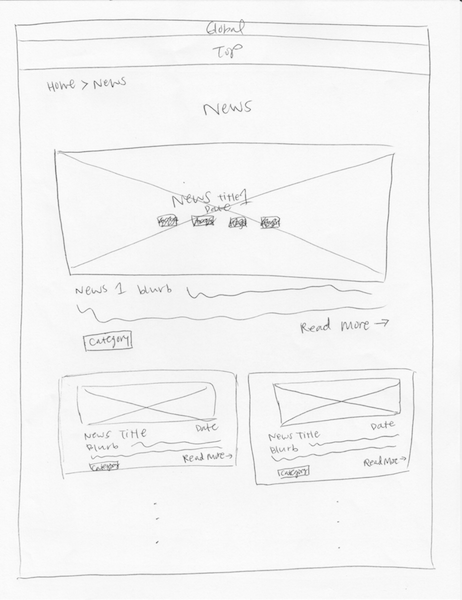 Global
Top
Home > News
News
News Title 1
Date
News 1 blurb
Read More →
Category
News Title Date
Blurb
Category Read More →
News Title Date
Blurb
Category Read More →